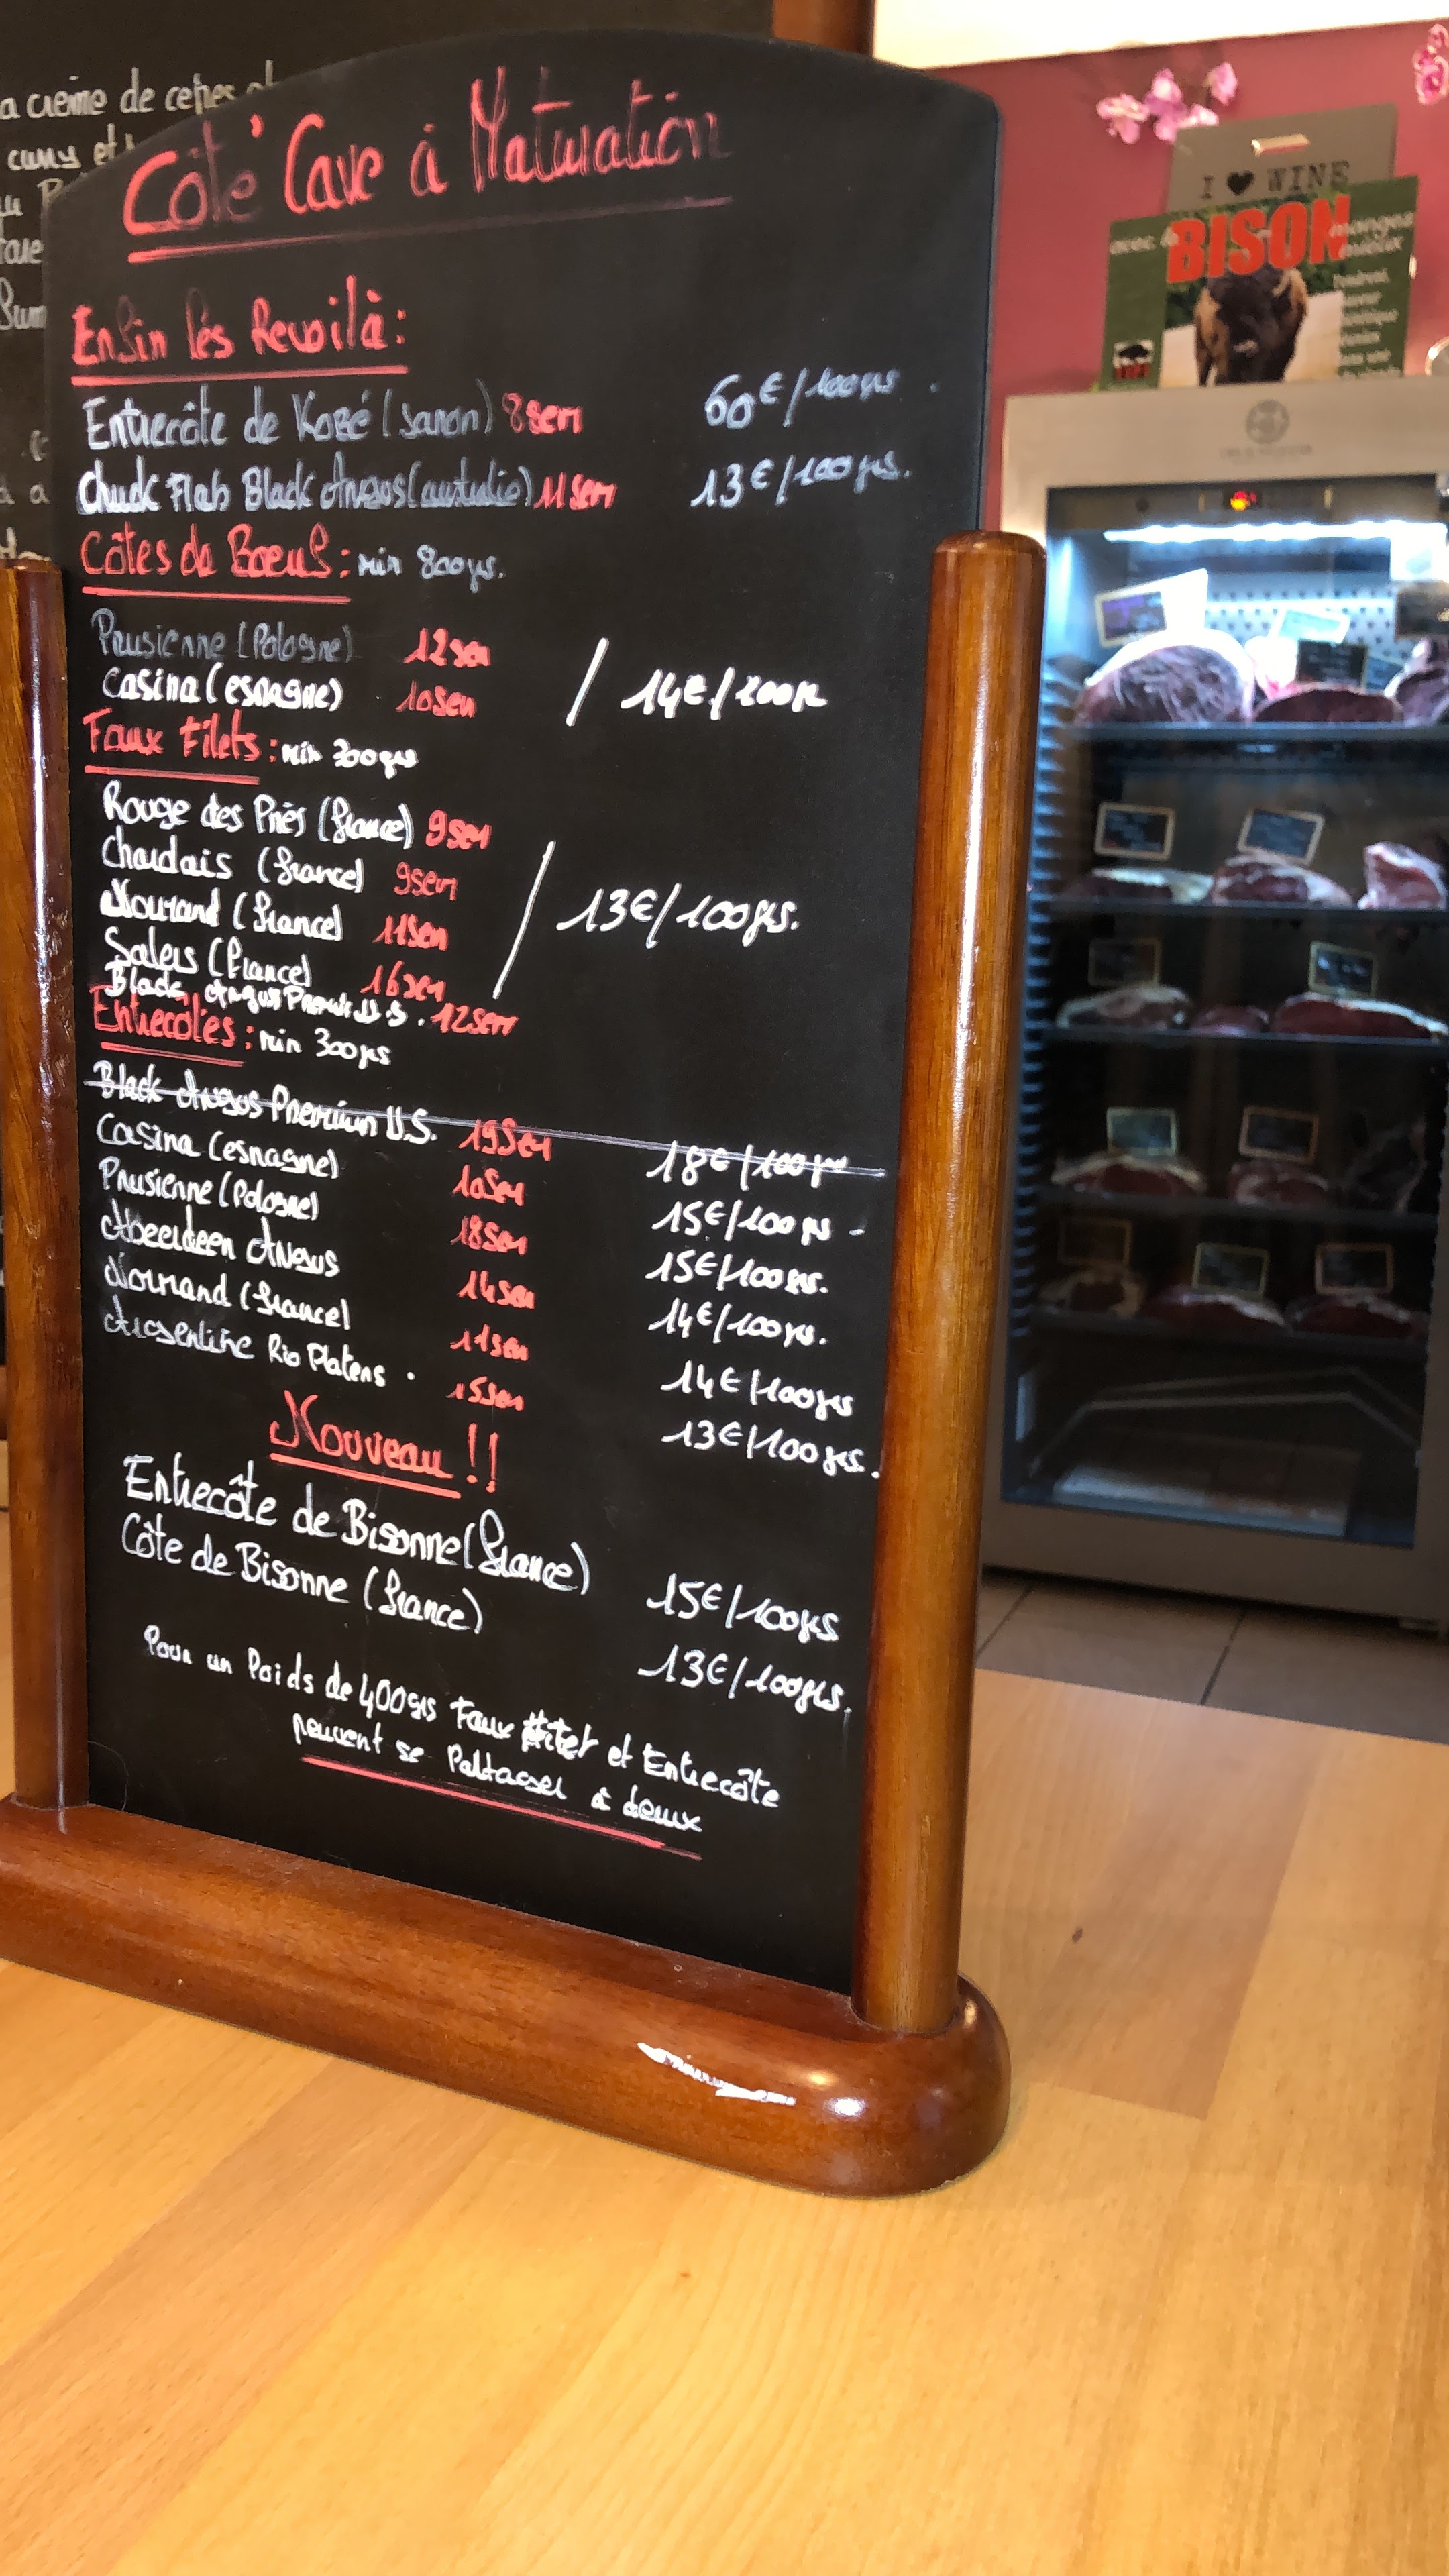 a crème de cèpes et
cuns et
Côté Cave à Maturation
Enfin les Revoilà :
Entrecôte de Kobé (Japon) 8sem 60€/100grs.
Chuck Flab Black Angus (australie) 11sem 13€/100grs.
Côtes de Boeuf : min 800grs.
Prusienne (Pologne) 12sem
Casina (espagne) 10sem / 14€/100gr
Faux Filets : min 300grs
Rouge des Prés (france) 9sem
Charolais (france) 9sem
Normand (france) 11sem / 13€/100grs.
Salers (france) 16sem
Black Angus Premium U.S. 12sem
Entrecôtes : min 300grs
Black Angus Premium U.S. 19sem 18€/100grs
Casina (espagne) 10sem 15€/100grs -
Prusienne (Pologne) 18sem 15€/100grs.
Abeerdeen Angus 14sem 14€/100grs.
Normand (france) 11sem 14€/100grs
Argentine Rio Platens . 15sem 13€/100grs.
Nouveau !!
Entrecôte de Bisonne (france) 15€/100grs
Côte de Bisonne (france) 13€/100grs.
Pour un Poids de 400grs Faux filet et Entrecôte
peuvent se Partager à deux
I ♥ WINE
avec le BISON mangez
mieux